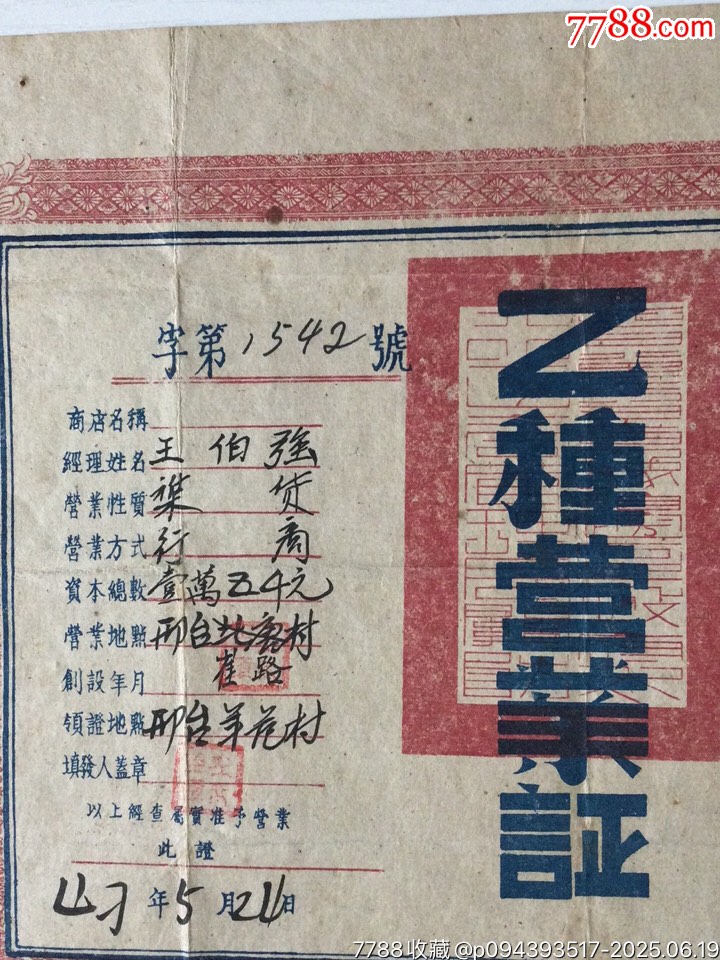 7788.com
乙種营業証
字第1542號
商店名稱
經理姓名 王伯强
營業性質 雜货
營業方式 行商
資本總數 壹萬五千元
營業地點 邢台北 村
崔路
創設年月
領證地點 邢台羊范村
填發人蓋章
以上經查屬實准予營業
此證
年5月24日
7788收藏@p094393517-2025.06.19